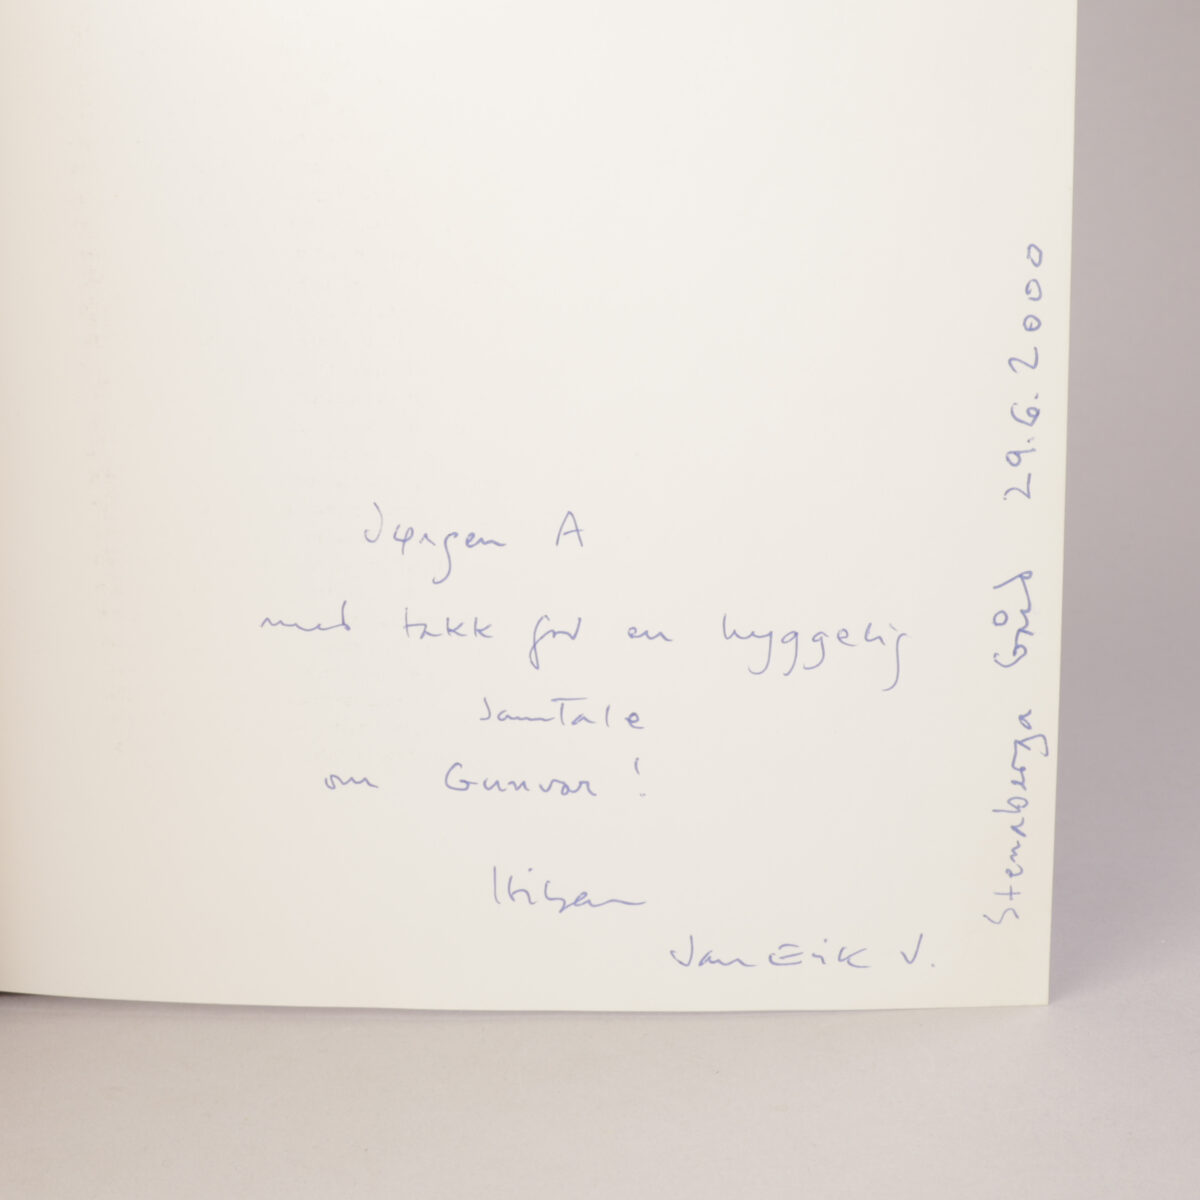 Jørgen A
med takk for en hyggelig
samTale
om Gunvor!
Hilsen
Jan Erik V.
Stennberga Gård 29.6.2000